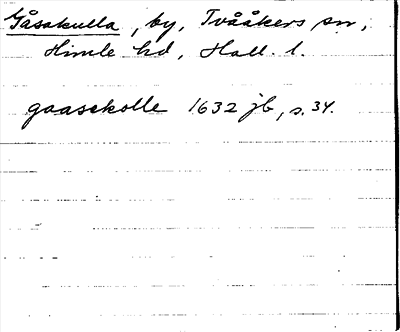 Gåsakulla, by, Tvååkers sn,
Himle hd, Hall. l.
gaasekolle 1632 jb, s. 34.